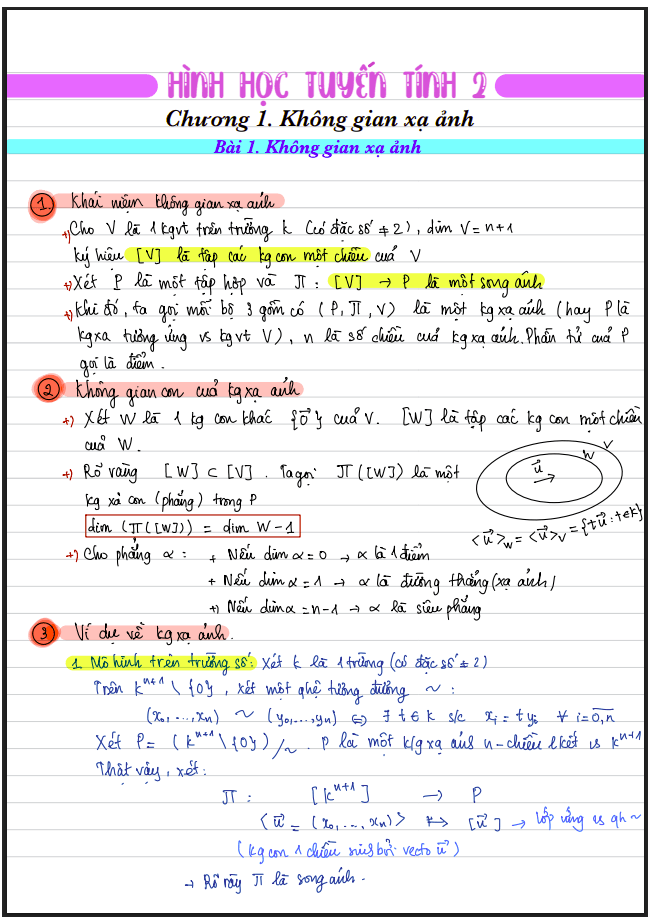 HÌNH HỌC TUYẾN TÍNH 2
Chương 1. Không gian xạ ảnh
Bài 1. Không gian xạ ảnh
1. Khái niệm không gian xạ ảnh
+) Cho V là 1 kgvt trên trường k (có đặc số ≠ 2), dim V = n+1
ký hiệu [V] là tập các kg con một chiều của V
+) Xét P là một tập hợp và π : [V] → P là một song ánh
+) Khi đó, ta gọi mỗi bộ 3 gồm có (P, π, V) là một kg xạ ảnh (hay P là
kgxa tương ứng vs kgvt V), n là số chiều của kg xạ ảnh. Phần tử của P
gọi là điểm.
2 Không gian con của kg xạ ảnh
+) Xét W là 1 kg con khác {0⃗} của V. [W] là tập các kg con một chiều
của W.
+) Rõ ràng [W] ⊂ [V]. Ta gọi π([W]) là một
kg xạ con (phẳng) trong P
dim (π([W])) = dim W - 1
u⃗ W V
<u⃗>_W = <u⃗>_V = {tu⃗ : t∈k}
+) Cho phẳng α : + Nếu dim α = 0 → α là 1 điểm
+ Nếu dim α = 1 → α là đường thẳng (xạ ảnh)
+) Nếu dim α = n-1 → α là siêu phẳng
3 Ví dụ về kg xạ ảnh.
1. Mô hình trên trường số: Xét k là 1 trường (có đặc số ≠ 2)
Trên k^{n+1} \ {0}, xét một qhệ tương đương ~ :
(x₀,...,xₙ) ~ (y₀,...,yₙ) ⇔ ∃ t ∈ k s/c xᵢ = tyᵢ ∀ i = 0,n
Xét P = (k^{n+1} \ {0})/~ . P là một k/g xạ ảnh n-chiều lkết vs k^{n+1}
Thật vậy, xét:
π : [k^{n+1}] → P
<u⃗ = (x₀,...,xₙ)> ↦ [u⃗] → lớp ứng vs qh ~
(kg con 1 chiều sinh bởi vectơ u⃗)
→ Rõ ràng π là song ánh.